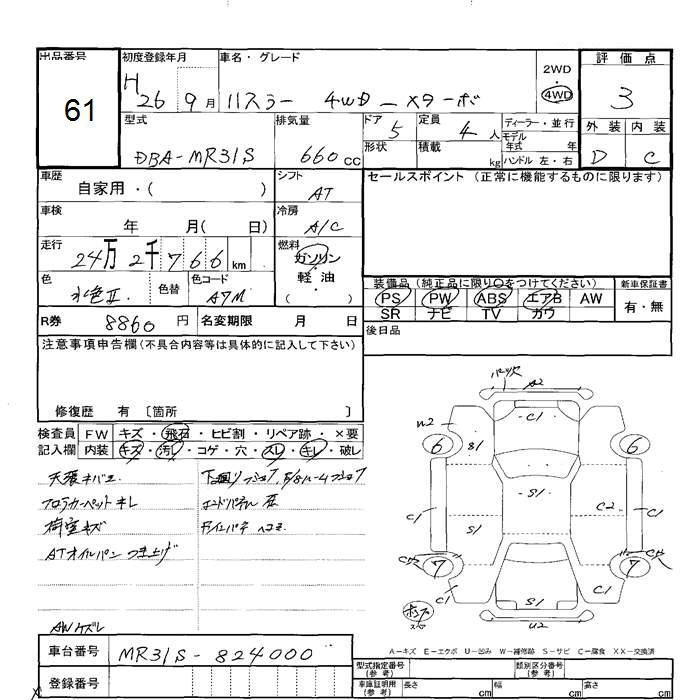 出品番号 初度登録年月 車名・グレード 評価点
61
H 26 9月 ハスラー 4WD - Xターボ 2WD 4WD 3
外装 内装
D C
型式 排気量 ドア 定員 ディーラー・並行
DBA-MR31S 660cc 5 4人 モデル年式 年
形状 積載 kg ハンドル 左・右
車歴 シフト セールスポイント (正常に機能するものに限ります)
自家用・( ) AT
車検 冷房
年 月( 日) A/C
走行 燃料
24万2千766km ガソリン
軽油
( ・ )
色 色替 色コード
水色Ⅱ. A7M
装備品(純正品に限り〇をつけてください) 新車保証書
PS PW ABS エアB AW 有・無
SR ナビ TV カワ
R券 8860円 名変期限 月 日
後日品
注意事項申告欄(不具合内容等は具体的に記入して下さい)
修復歴 有 〔箇所 〕
検査員記入欄 FW キズ・飛石・ヒビ割・リペア跡・×要
内装 キズ・汚レ・コゲ・穴・スレ・キレ・破レ
フロアカーペットキレ
荷室キズ
ATオイルパン つき上げ
AWケズレ
A2
C1
W2
S1
6 6
S1
C1 C2 C1
S1
7 7
C1 C1
S1
U2
A-キズ E-エクボ U-凹み W-補修跡 S-サビ C-腐食 XX-交換済
車台番号 MR31S-824000
型式指定番号(参考) 類別区分番号(参考)
登録番号
車庫証明用(参考) 長さ cm 幅 cm 高さ cm